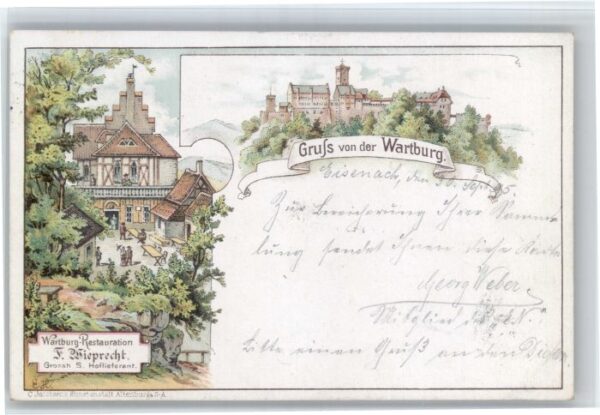 Gruſs von der Wartburg.
Eisenach, den Sept. 95.
Zur Bereicherung Ihrer Samm-
lung sendet Ihnen diese Karte
Georg Weber
Mitglied
Bitte einen Gruß an den
Wartburg-Restauration
F. Wieprecht.
Grossh. S. Hoflieferant.
Kunstanstalt, Altenburg, S-A.